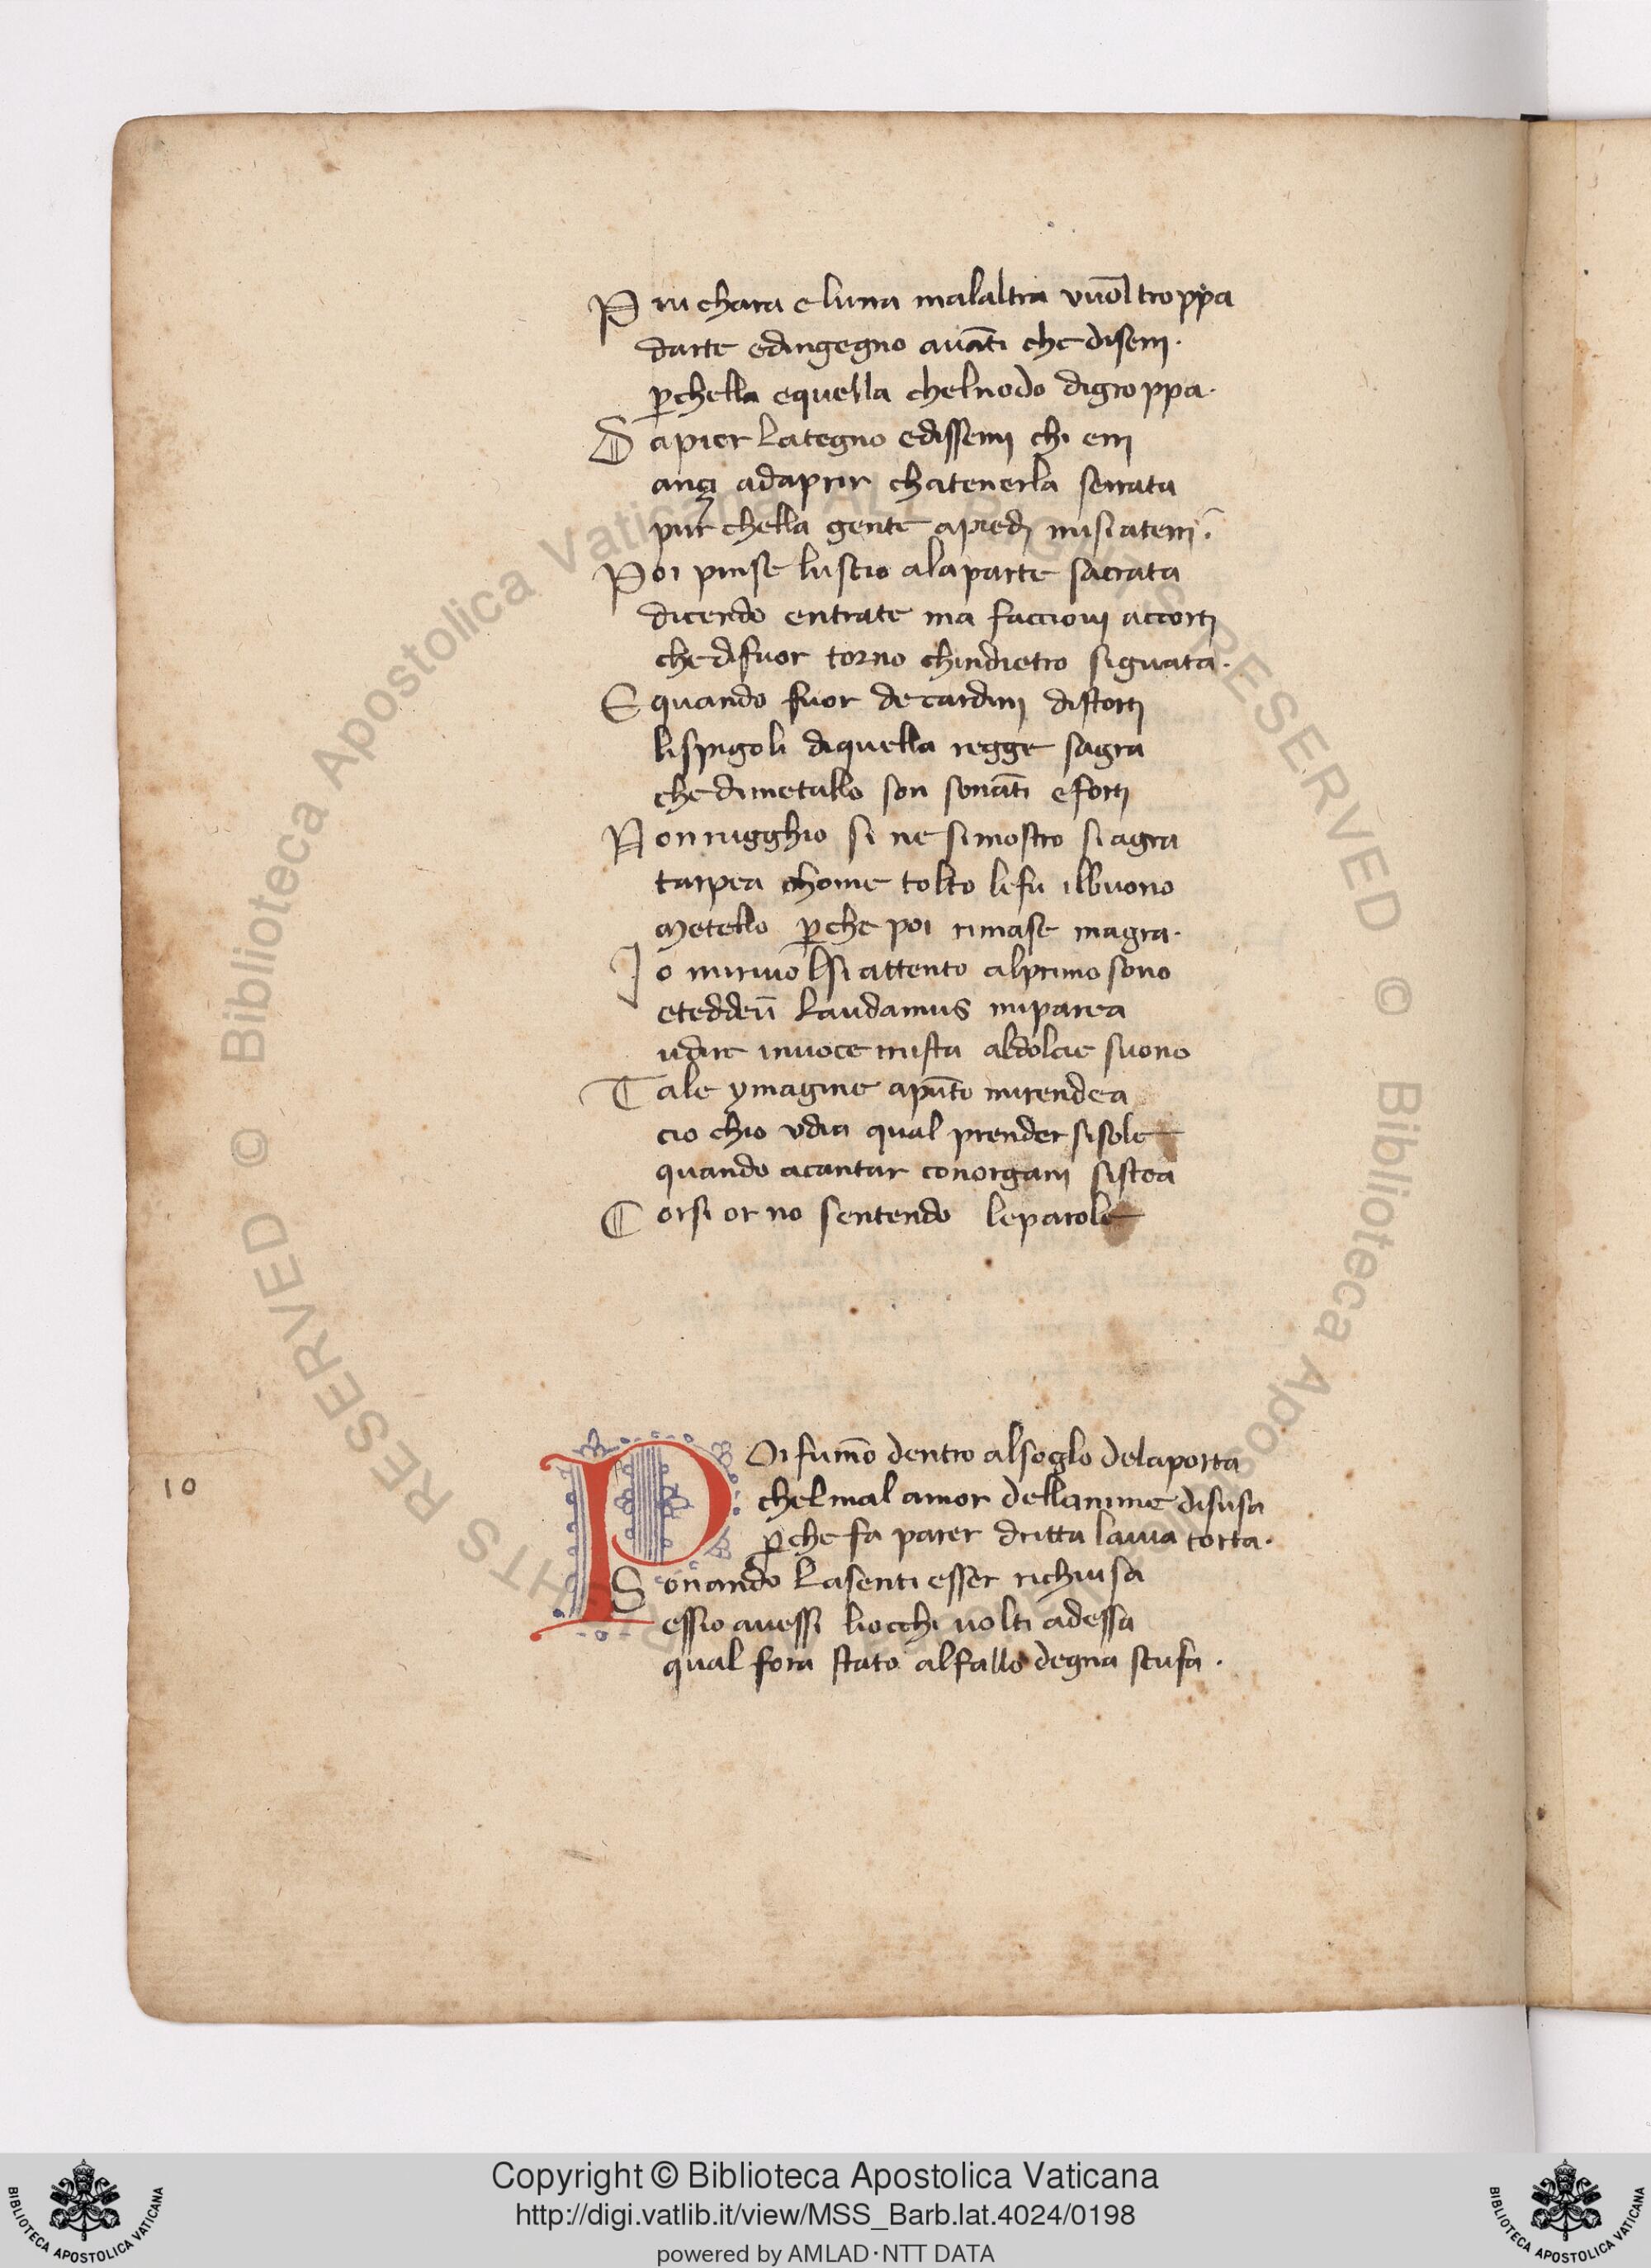 Piu chara e luna malaltra vuol troppa
darte edingegno auāti che diseri.
ꝑchella equella chelnodo digroppa.
Da pier lategno edissemi chi erri
ançi adaprir chatenerla serrata
pur chella gente apiedi misi aterri.
Poi pinse luscio alaparte sacrata
dicendo entrate ma faccioui accorti
chedifuor torno chindietro siguata.
E quando fuor de cardini distorti
lispigoli diquella regge sagra
chedimetallo son sonāti e forti
Non rugghio si ne simostro si agra
tarpea chome tolto lefu ilbuono
metello ꝑche poi rimase magra.
Io miriuolsi attento alprimo sono
eteddeū laudamus miparea
udire inuoce mista aldolcie suono
Tale ymagine apūto mirendea
cio chio vdia qual prender sisole
quando acantar conorgani sistea
Corsi or no sentendo leparole
POi fumō dentro alsoglo delaporta
chelmal amor dellanime disusa
ꝑche fa parer dritta lauia torta.
Sonando lasenti esser richiusa
essio auessi liocchi uolti adessa
qual fora stato alfallo degna scusa.
10
© Biblioteca Apostolica Vaticana ALL RIGHTS RESERVED © Biblioteca Apostolica Vaticana ALL RIGHTS RESERVED
Copyright © Biblioteca Apostolica Vaticana
http://digi.vatlib.it/view/MSS_Barb.lat.4024/0198
powered by AMLAD·NTT DATA
BIBLIOTECA APOSTOLICA VATICANA
BIBLIOTECA APOSTOLICA VATICANA